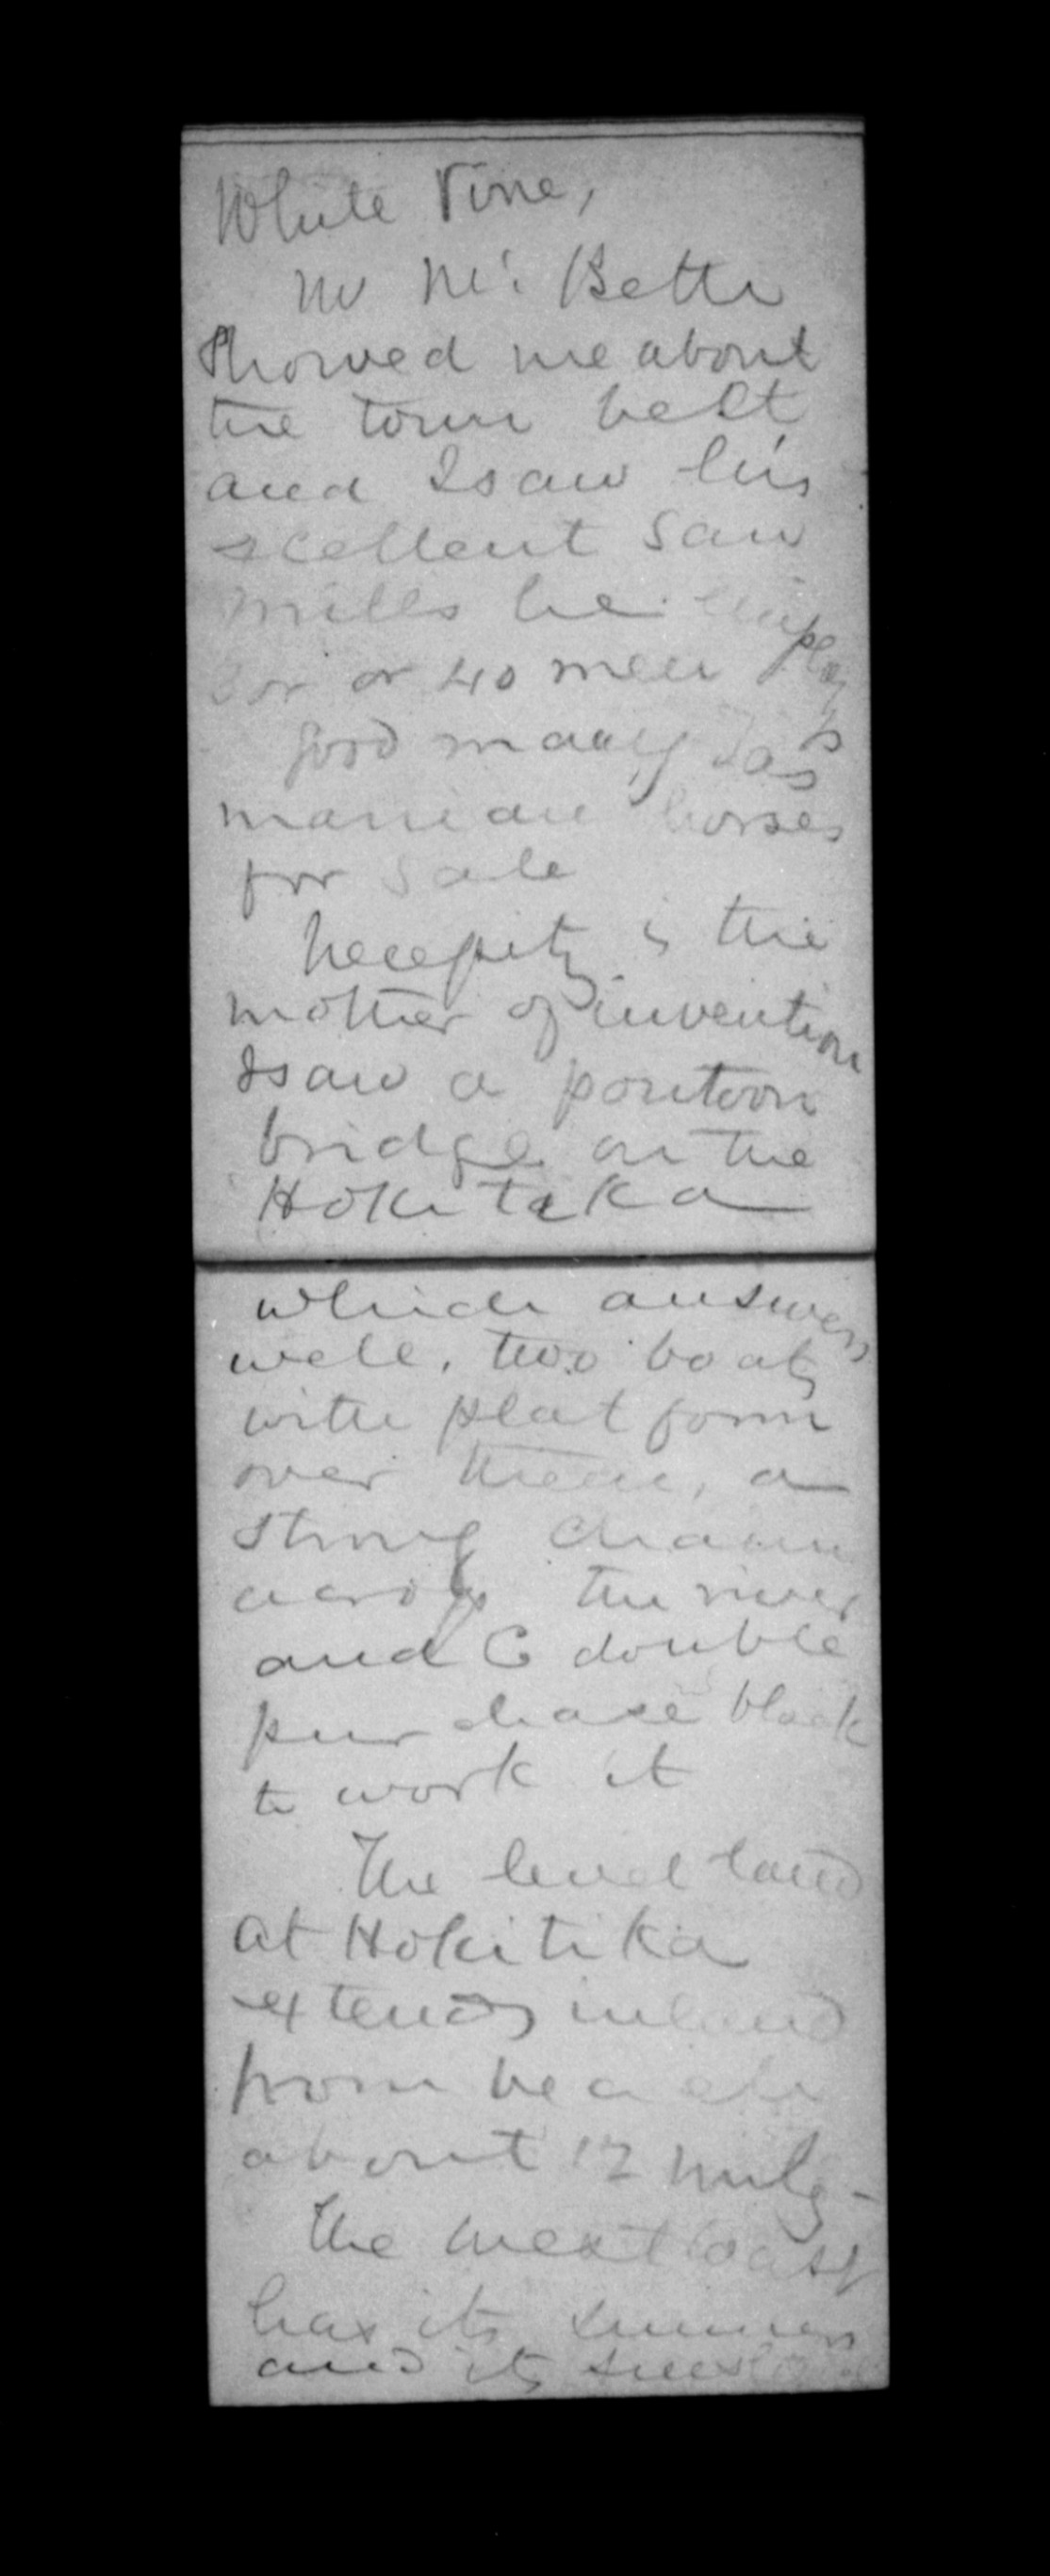 White Pine,
Mr Mc. Beth
showed me about
the town belt
and I saw his
excellent saw
mills he employs
or 40 men
good many Tas
manian horses
for sale
Necessity is the
mother of invention
I saw a pontoon
bridge on the
Hokitika
which answers
well, two boats
with platform
over them, a
strong chain
across the river
and a double
purchase block
to work it
The level land
at Hokitika
extends inland
from beach
about 12 miles -
The West Coast
has its
and its